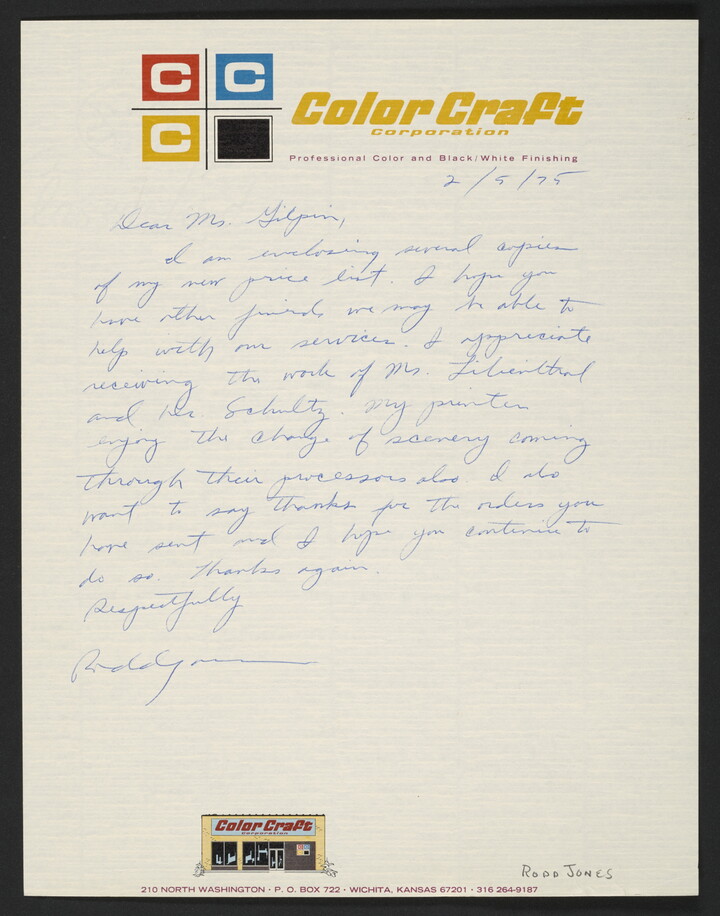 C C
C
Color Craft
Corporation
Professional Color and Black/White Finishing
2/5/75
Dear Ms. Gilpin,
I am enclosing several copies
of my new price list. I hope you
have other friends we may be able to
help with our services. I appreciate
receiving the work of Ms. Lilienthal
and Schultz. My printers
enjoy the change of scenery coming
through their processors also. I also
want to say thanks for the orders you
have sent and I hope you continue to
do so. Thanks again.
Respectfully
Rodd Jones
Color Craft
Corporation
RODD JONES
210 NORTH WASHINGTON · P. O. BOX 722 · WICHITA, KANSAS 67201 · 316 264-9187